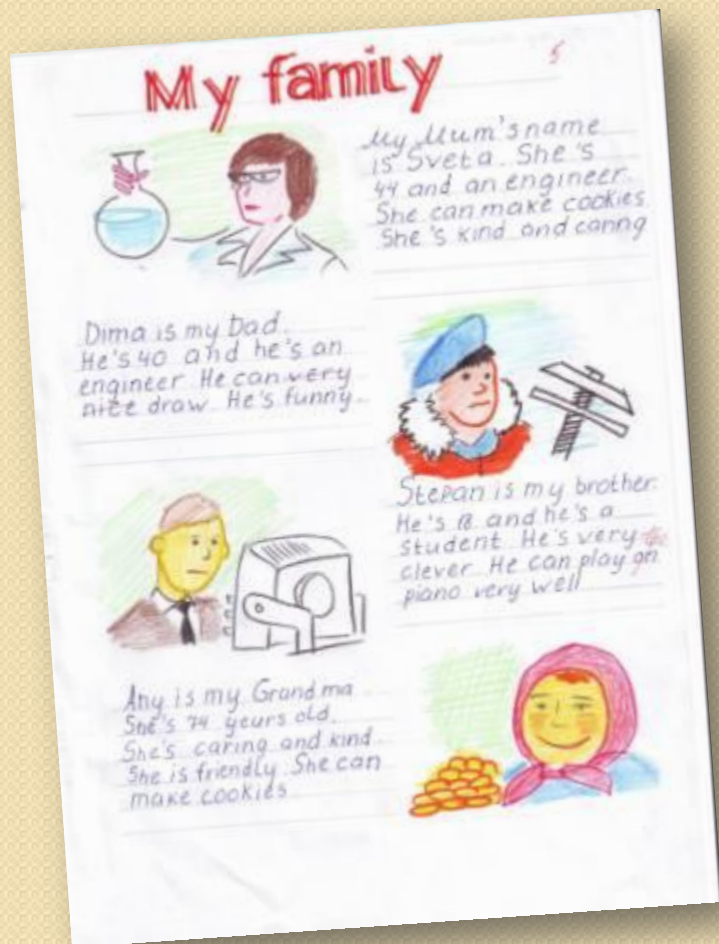 My family
5
My Mum's name
is Sveta. She's
44 and an engineer.
She can make cookies.
She's kind and caring
Dima is my Dad.
He's 40 and he's an
engineer. He can very
nice draw. He's funny.
Stepan is my brother.
He's 18 and he's a
student. He's very
clever. He can play on the
piano very well
Any is my Grandma
She's 74 years old.
She's caring and kind.
She is friendly. She can
make cookies